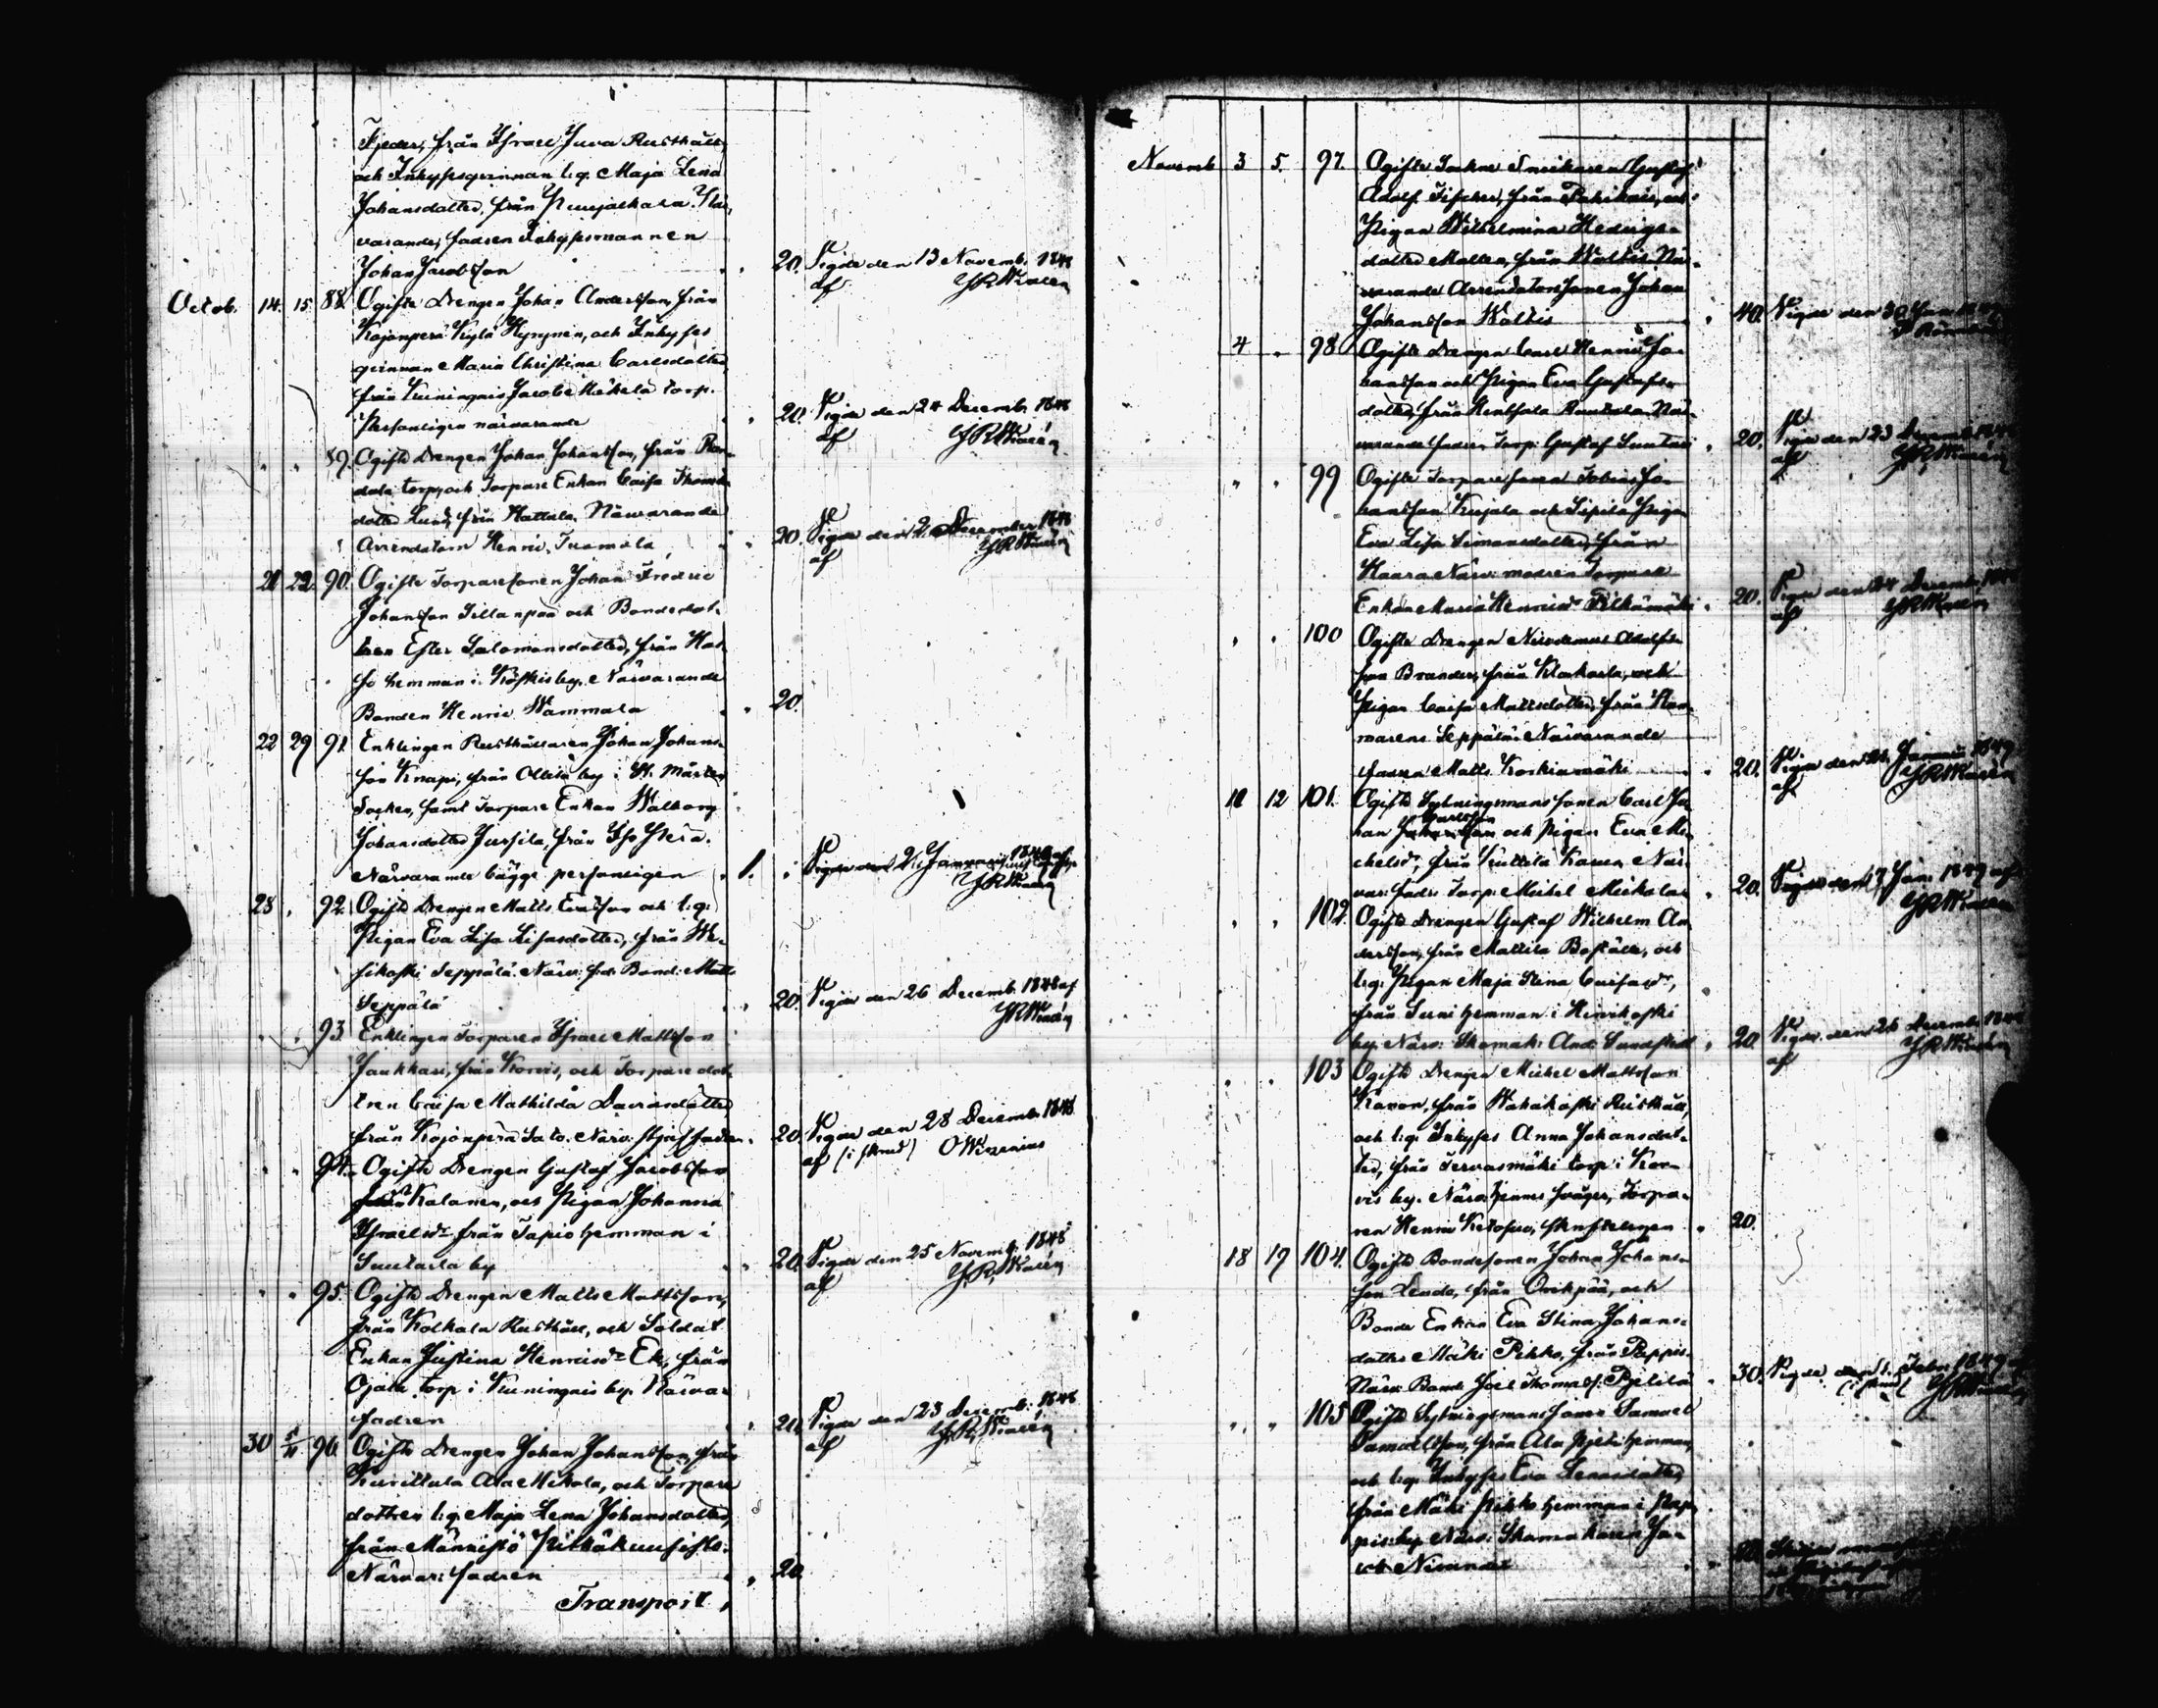 Fjeder, från Israel Juva Rusthåll
och Inhysesqvinnan l:q: Maja Lena
Johansdotter, från Närvarande
varande, fadren Inhysesmannen
Johan Jacobsson " 20. Vigde den 13 Novemb. 1848
af
Octob. 14. 15. 88. Ogifte Drengen Johan Andersson, från
Kojonperä Kylä Hyrynen, och Inhyses
qvinnan Maria Christina Carlsdotter
från Kuninginis Jacobs Mäkelä torp.
Personligen närvarande " 20. Vigde den 24 Decemb. 1848
af
" " 89. Ogifte Drengen Johan Johansson, från
dala torp, och Torpare Enkan Caisa Thomas
dotter Lund, från Mattala. Närvarande
Arrendatorn Henric Tuomola " 20. Vigde den 2 December 1848
af
21 22. 90. Ogifte Torparesonen Johan Fredric
Johansson Sillanpää och Bondedot-
tren Ester Salomonsdotter, från
hemman i Köskis by. Närvarande
Bonden Henric Wammala " 20.
22 29 91. Enklingen Rusthållaren Johan Johans-
son Knapi, från Ollila by i St. Mårtens
Socken, samt Torpare Enkan Walborg
Johansdotter Jussila, från
Närvarande bägge personligen " 1. " Vigde den 2 Januarii 1849 af
28 " 92. Ogifte Drengen Matts Ericsson och l:q:
Pigan Eva Lisa Lisasdotter, från We-
sikoski Seppälä. Närv: fadr. Bond: Matts
Seppälä " 20. Vigde den 26 Decemb. 1848 af
" " 93. Enklingen Torparen Israel Mattsson
Jaakkari, från Korvis, och Torparedot-
tren Caisa Mathilda Davidsdotter
från Kojonperä Sato. Närv. styffadren " 20. Vigde den 28 Decemb. 1848
af
" " 94. Ogifte Drengen Gustaf Jacobsson
från Kalanen, och Pigan Johanna
Israelsdr från Tapio hemman i
Suutarla by " 20. Vigde den 25 Novemb. 1848
af
" " 95. Ogifte Drengen Matts Mattsson,
från Kolkala Rusthåll, och Soldat
Enkan Justina Henricsdr Ek, från
Ojala torp i Kuninginis by. Närvar
fadren " 20. Vigde den 23 Decemb. 1848
af
30 5/11 96. Ogifte Drengen Johan Johansson, från
Kurittula Ala Mikola, och Torpare
dottren l:q: Maja Lena Johansdotter,
från Männistö
Närvar: fadren " 20
Transport "
Novemb 3 5. 97. Ogifte Sockne Snickaren Gustaf
Adolf Fischer, från och
Pigan Wilhelmina Hedvigs-
dotter Mallen, från Waltis. När-
varande Arrendatorssonen Johan
Johansson Waltis " 40. Vigde den 30 Jan 1849
4 " 98 Ogifte Drengen Carl Henric Jo-
hansson och Pigan Eva Gustafs-
dotter, från Rautala. När-
varande fadren Torp: Gustaf Suutari " 20. Vigde den 23 Decemb 1848
af
" " 99 Ogifte Torparesonen Tobias Jo-
hansson Kujala och Sipilä Pigan
Eva Lisa Simonsdotter, från
Haara. Närv: modren Torpare
Enkan Maria Henricsdr " 20. Vigde den 24 Decemb. 1848
af
" " 100 Ogifte Drengen Nicodemus Adolfs-
son Brander, från och
Pigan Caisa Mattsdotter, från
Seppälä. Närvarande
fadren Matts Koskismäki " 20. Vigde den Januarii 1849
af
11 12 101. Ogifte Sytningsmans sonen Carl Jo-
han Carlsson och Pigan Eva Mi-
chelsdr, från Kuttila Kauen. När-
var: fadr: Torp: Michel Mickola " 20. Vigde den 17 Jan: 1849 af
" " 102. Ogifte Drengen Gustaf Wilhelm An-
dersson, från Mattila Boställe, och
l:q: Pigan Maja Stina Caisasdr,
från Suni hemman i Hirvikoski
by. Närv: Skomak: And: Sundstedt " 20. Vigde den 26 Decemb 1848
af
" " 103 Ogifte Drengen Michel Mattsson
från Wahakoski Rusthåll,
och l:q: Inhyses Anna Johansdot-
ter, från Tervasmäki torp i Kor-
vis by. Närv: hennes svåger, Torpa-
ren Henric Ketosuo, skriftligen " 20.
18 19 104. Ogifte Bondesonen Johan Johans-
son Lendo, från Orihpää, och
Bonde Enkan Eva Stina Johans-
dotter Mäki Pikko, från Pappis.
Närv: Bond: Joel Thomass. Pjetilä " 30. Vigde den 1. Febr. 1849
" " 105 Ogifte Sytningsmans sonen Samuel
Samuelsson, från Ala Pjeti hemman,
och l:q: Inhyses Eva Lenasdotter
från Mäki Pikko hemman i Pap-
pis by. Närv: Skomakaren Ja-
cob Nirander " 20.